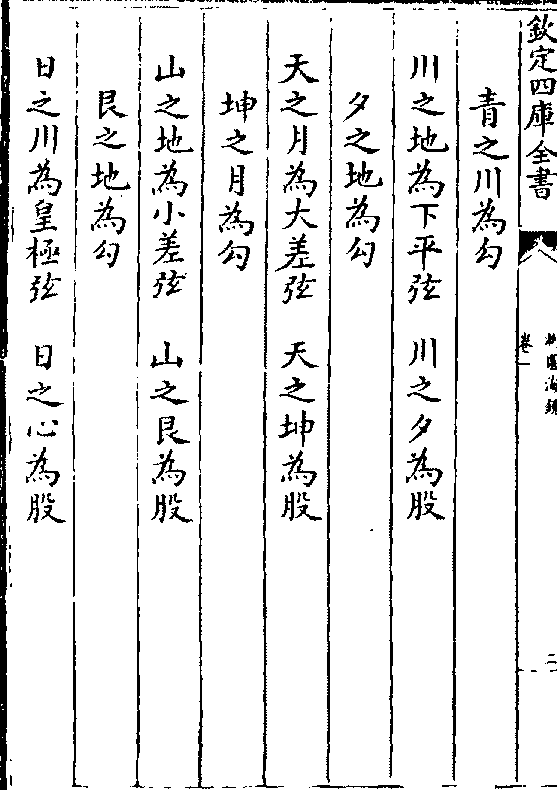 欽定四庫全書
卷一
二
青之川為勾
川之地為下平弦　川之夕為股
夕之地為勾
天之月為大差弦　天之坤為股
坤之月為勾
山之地為小差弦　山之艮為股
艮之地為勾
日之川為皇極弦　日之心為股